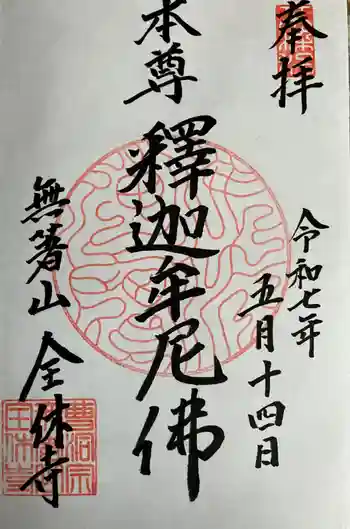 奉拝
令和七年
五月十四日
本尊
釋迦牟尼佛
無著山
全休寺